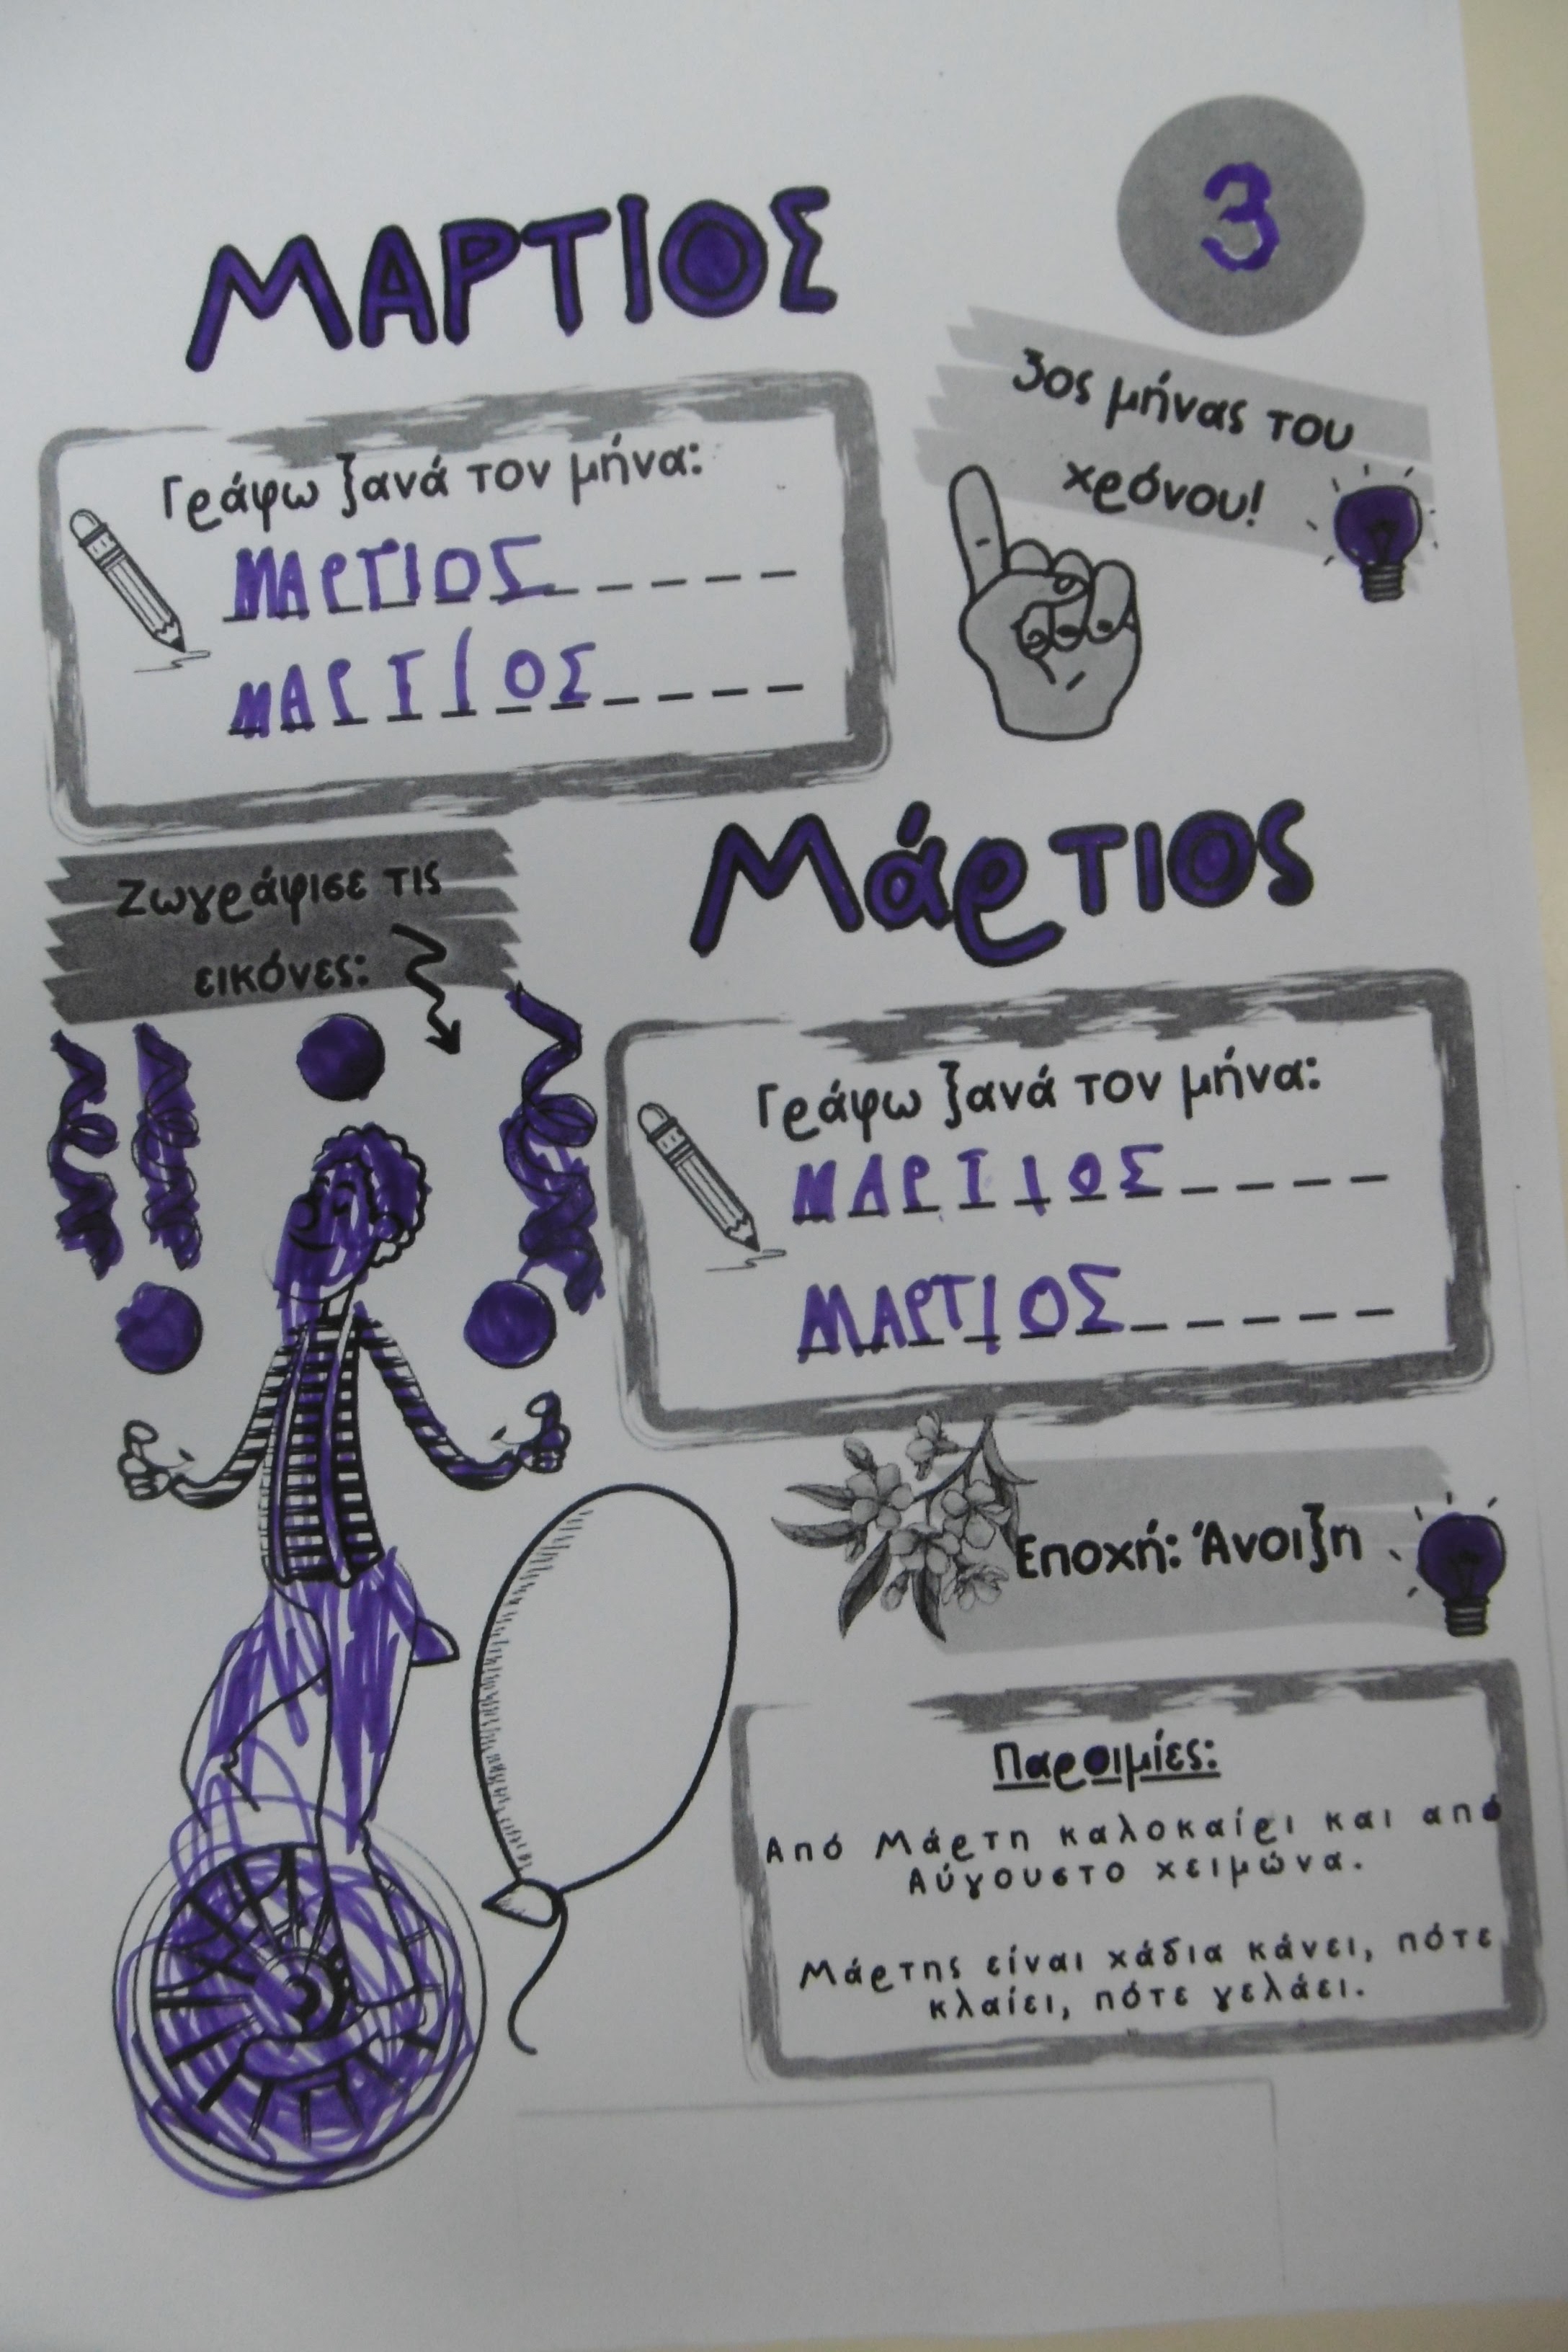 3
ΜΑΡΤΙΟΣ
3ος μήνας του
χρόνου!
Γράφω ξανά τον μήνα:
ΜΑΡΤΙΟΣ
ΜΑΡΤΙΟΣ
Μάρτιος
Ζωγράφισε τις
εικόνες:
Γράφω ξανά τον μήνα:
ΜΑΡΤΙΟΣ
ΜΑΡΤΙΟΣ
Εποχή: Άνοιξη
Παροιμίες:
Από Μάρτη καλοκαίρι και από
Αύγουστο χειμώνα.
Μάρτης είναι χάδια κάνει, πότε
κλαίει, πότε γελάει.